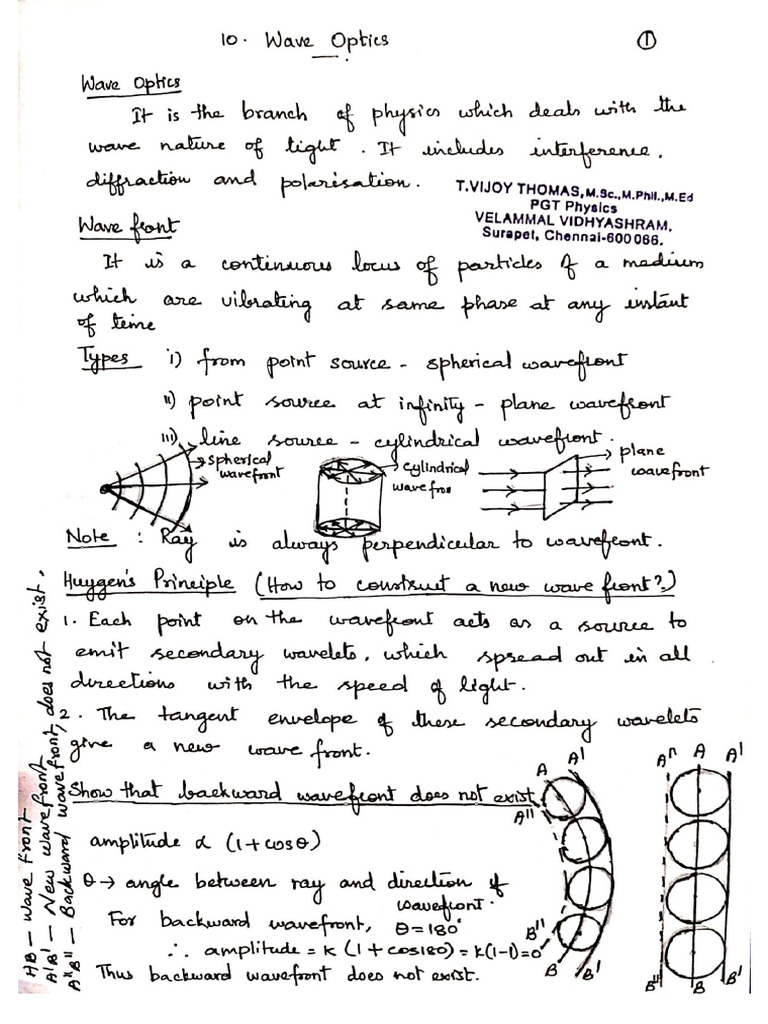 10. Wave Optics
①
Wave Optics
It is the branch of physics which deals with the
wave nature of light. It includes interference,
diffraction and polarisation.
T.VIJOY THOMAS, M.Sc., M.Phil., M.Ed
PGT Physics
VELAMMAL VIDHYASHRAM,
Surapet, Chennai-600066.
Wave front
It is a continuous locus of particles of a medium
which are vibrating at same phase at any instant
of time
Types i) from point source - spherical wavefront
ii) point source at infinity - plane wavefront
iii) line source - cylindrical wavefront.
spherical
wavefront
cylindrical
wavefron
plane
wavefront
Note : Ray is always perpendicular to wavefront.
Huygen's Principle (How to construct a new wave front?)
1. Each point on the wavefront acts as a source to
emit secondary wavelets, which spread out in all
directions with the speed of light.
2. The tangent envelope of these secondary wavelets
give a new wave front.
Show that backward wavefront does not exist
amplitude α (1+cosθ)
θ → angle between ray and direction of
wavefront.
For backward wavefront, θ=180°
∴ amplitude = k (1+cos180) = k(1-1)=0
Thus backward wavefront does not exist.
A A' A'' B'' B B'
A'' A A' B'' B B'
AB - Wave front
A'B' - New wavefront
A''B'' - Backward wavefront, does not exist.